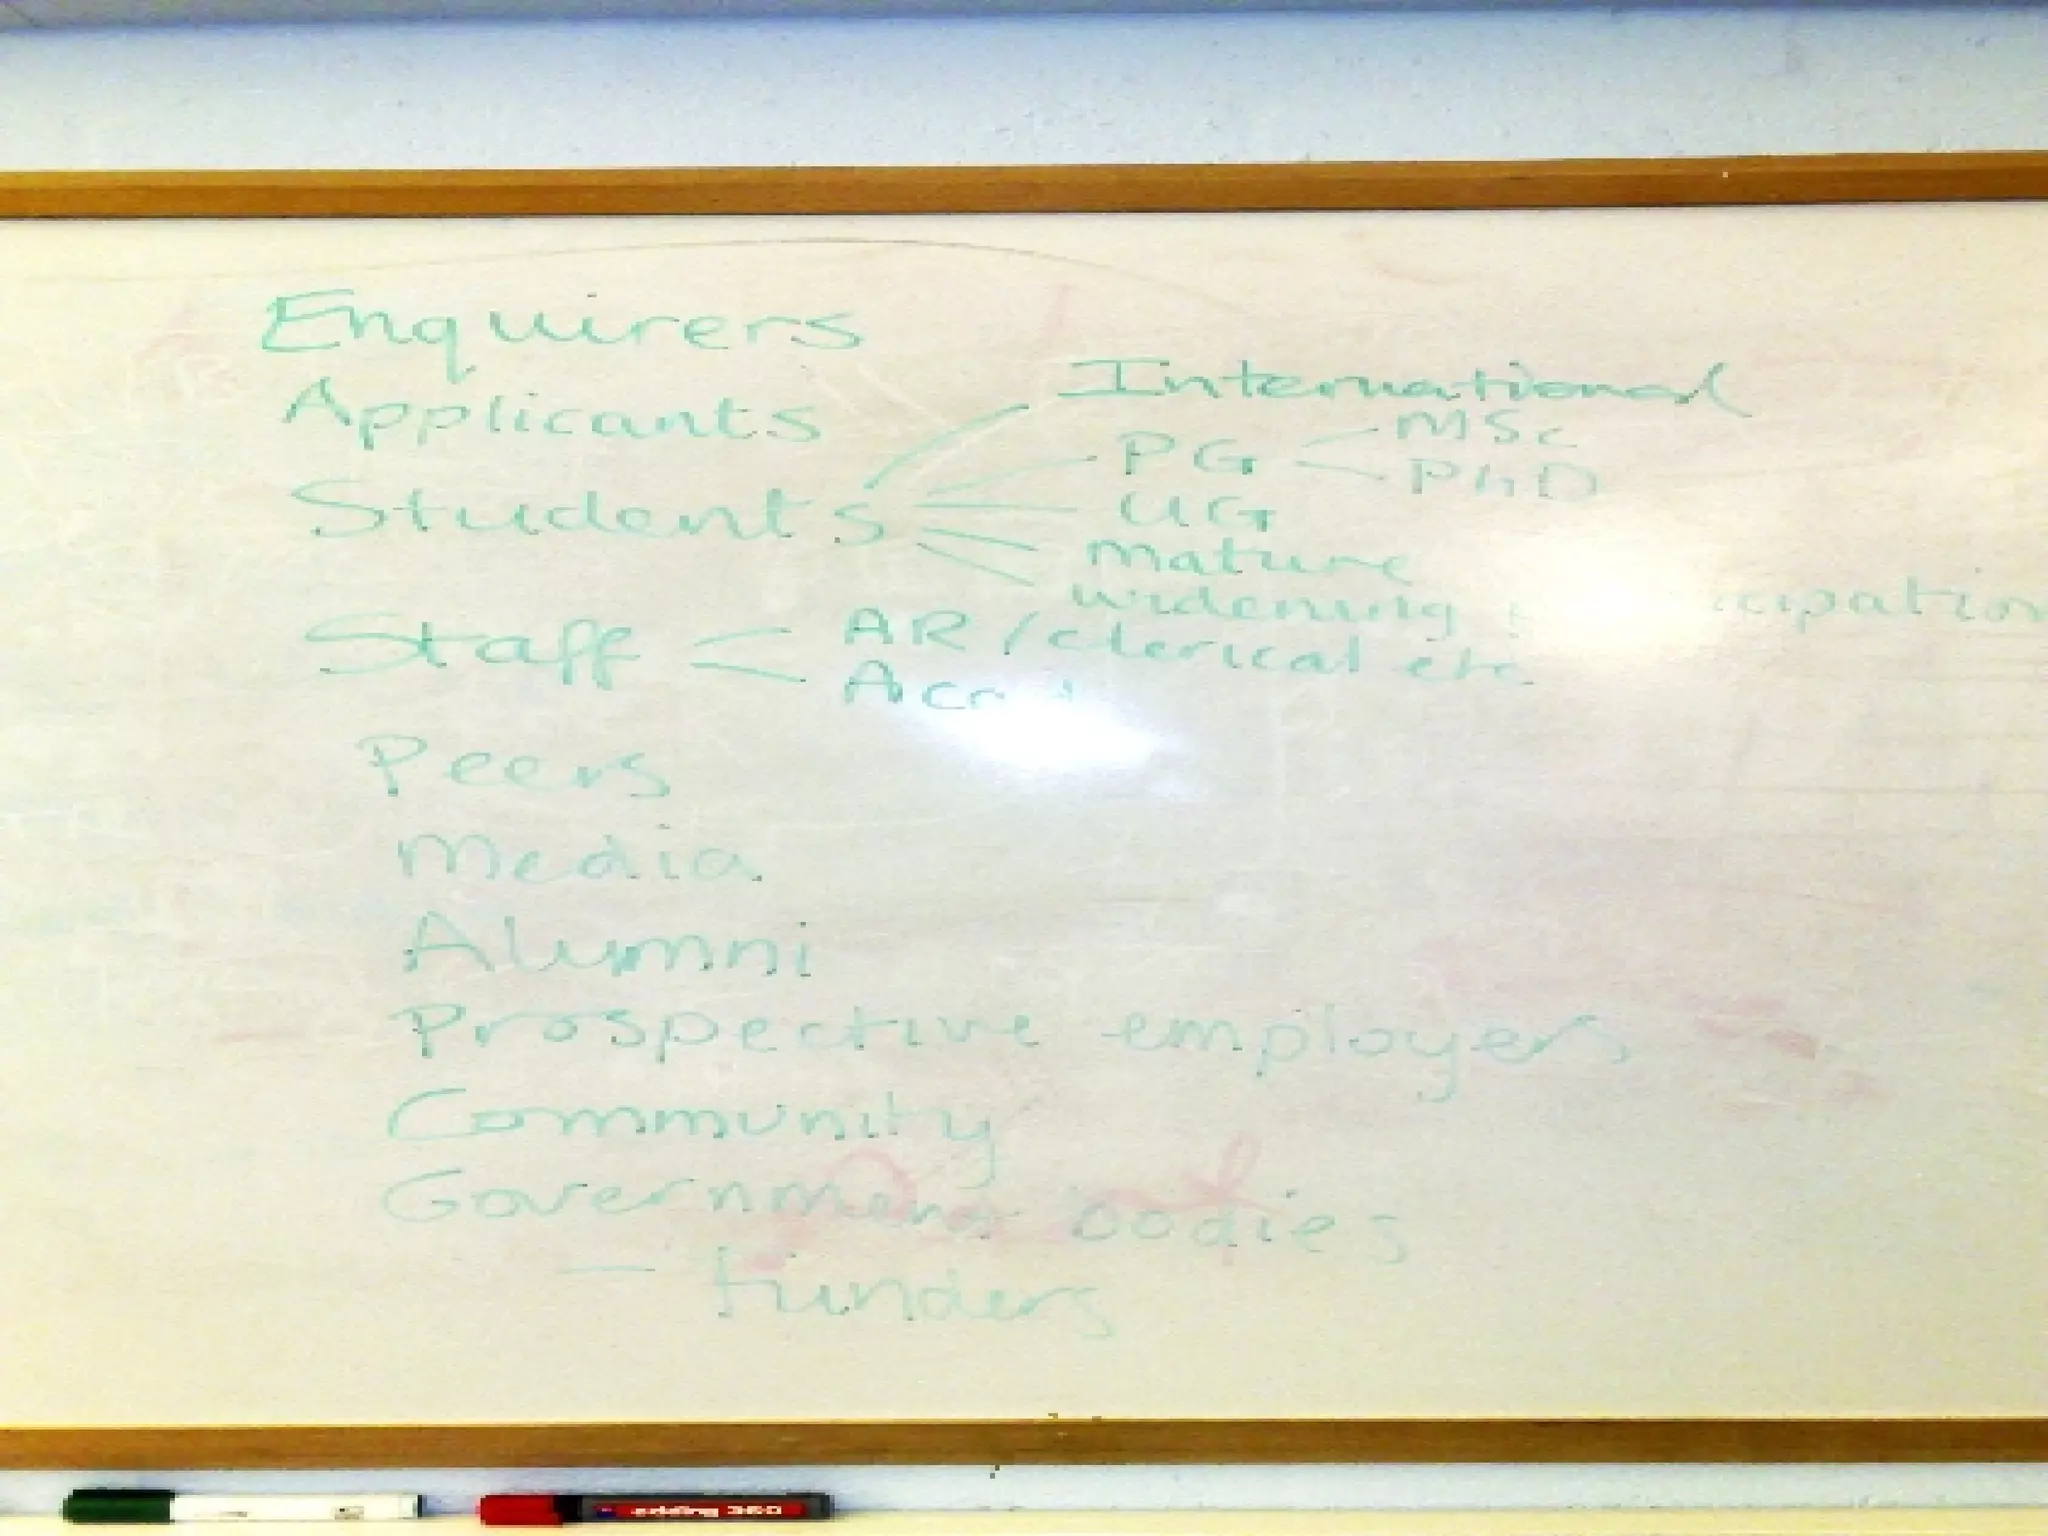 Enquirers
International
Applicants
MSc
PG
PhD
Students
UG
mature
widening
Staff
AR / clerical etc
Peers
Media
Alumni
Prospective employers
Community
Government bodies
- funders
edding